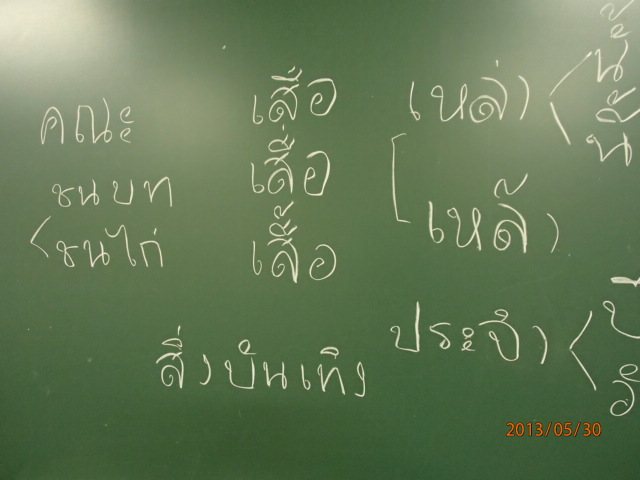 คณะ
ชนบท
ชนไก่
เสือ
เสื่อ
เสื้อ
เหล่า
เหล้า
ประจำ
สิ่งบันเทิง
2013/05/30